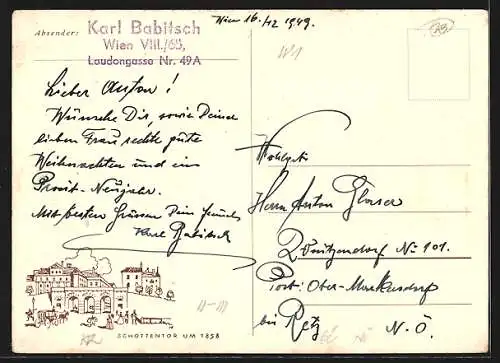 Absender:
Karl Babitsch
Wien VIII./65,
Laudongasse Nr. 49A
Wien 16./12 1949.
Lieber Anton!
Wünsche Dir, sowie Deiner
lieben Frau rechte gute
Weihnachten und ein
Prosit-Neujahr.
Mit besten Grüssen Dein Freund
Karl Babitsch
Wohlgeb.
Herrn Anton Glaser
Nº 101.
Post: Ober-Markersdorf
bei Retz N.Ö.
SCHOTTENTOR UM 1858
II-III